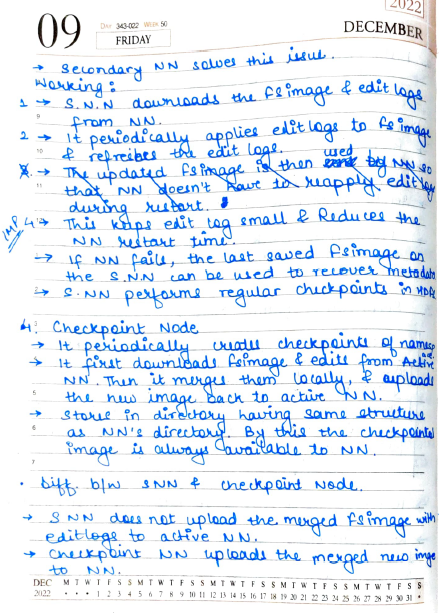 2022
09
DAY 343-022 WEEK 50
FRIDAY
DECEMBER
→ Secondary NN solves this issue.
Working:
1 → S.N.N downloads the FSimage & edit logs
from NN.
2 → It periodically applies edit logs to fs image
& refreshes the edit logs.
3. → The updated fsimage is then used by NN so
that NN doesn't have to reapply edit log
during restart.
IMP 4 → This keeps edit log small & Reduces the
NN restart time.
→ If NN fails, the last saved FSimage on
the S.NN can be used to recover metadata
→ S.NN performs regular checkpoints in HDFS
4. Checkpoint Node
→ It periodically creates checkpoints of namesp
→ It first downloads fsimage & edits from Active
NN. Then it merges them locally, & uploads
the new image back to active NN.
→ Stores in directory having same structure
as NN's directory. By this the checkpointed
image is always available to NN.
• Diff. b/w SNN & Checkpoint Node.
→ SNN does not upload the merged FSimage with
editlogs to active NN.
→ Checkpoint NN uploads the merged new imge
to NN.
DEC M T W T F S S M T W T F S S M T W T F S S M T W T F S S M T W T F S S
2022 • • • 1 2 3 4 5 6 7 8 9 10 11 12 13 14 15 16 17 18 19 20 21 22 23 24 25 26 27 28 29 30 31 •